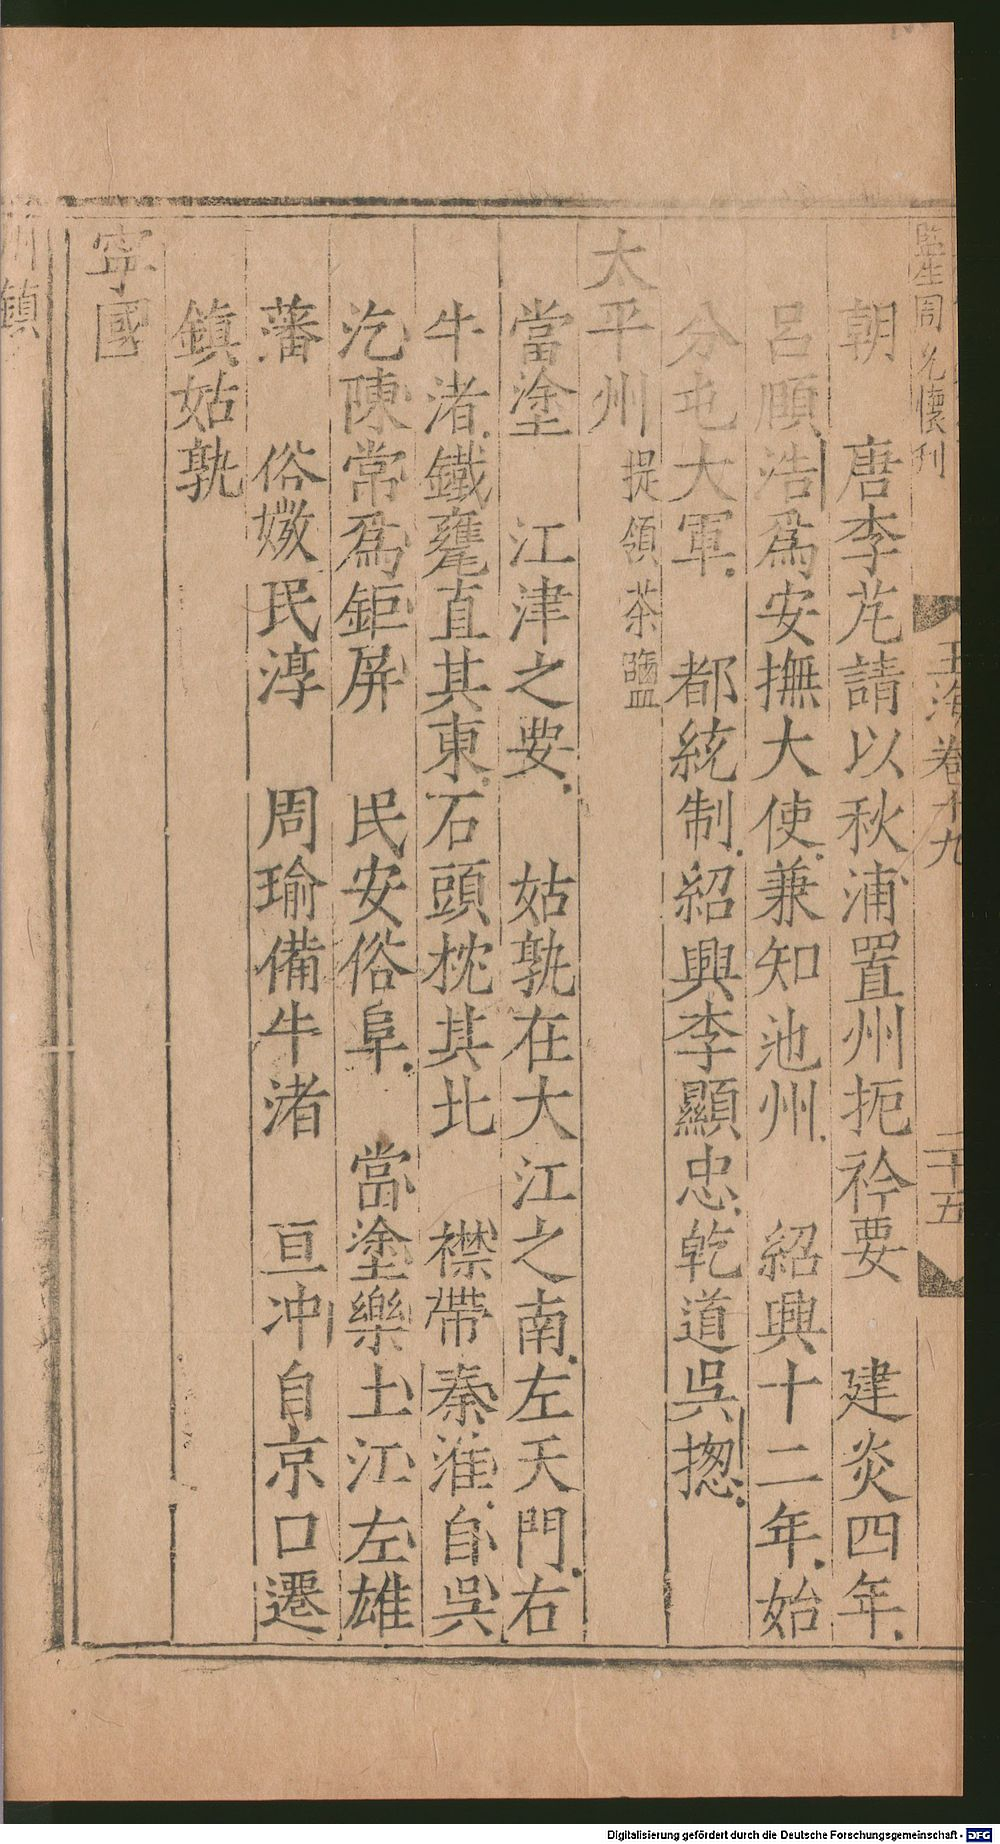 監生周允懷刋
玉海卷十九
二十五
朝　唐李芃請以秋浦置州扼衿要　建炎四年
呂頤浩爲安撫大使兼知池州　紹興十二年始
分屯大軍　都統制紹興李顯忠乾道吳揔
太平州提領茶鹽
當塗　江津之要　姑孰在大江之南左天門右
牛渚鐵甕直其東石頭枕其北　襟帶秦淮自吳
汔陳常爲鉅屏　民安俗阜　當塗樂土江左雄
藩　俗媺民淳　周瑜備牛渚　亘冲自京口遷
鎮姑孰
寜國
州鎮
Digitalisierung gefördert durch die Deutsche Forschungsgemeinschaft - DFG